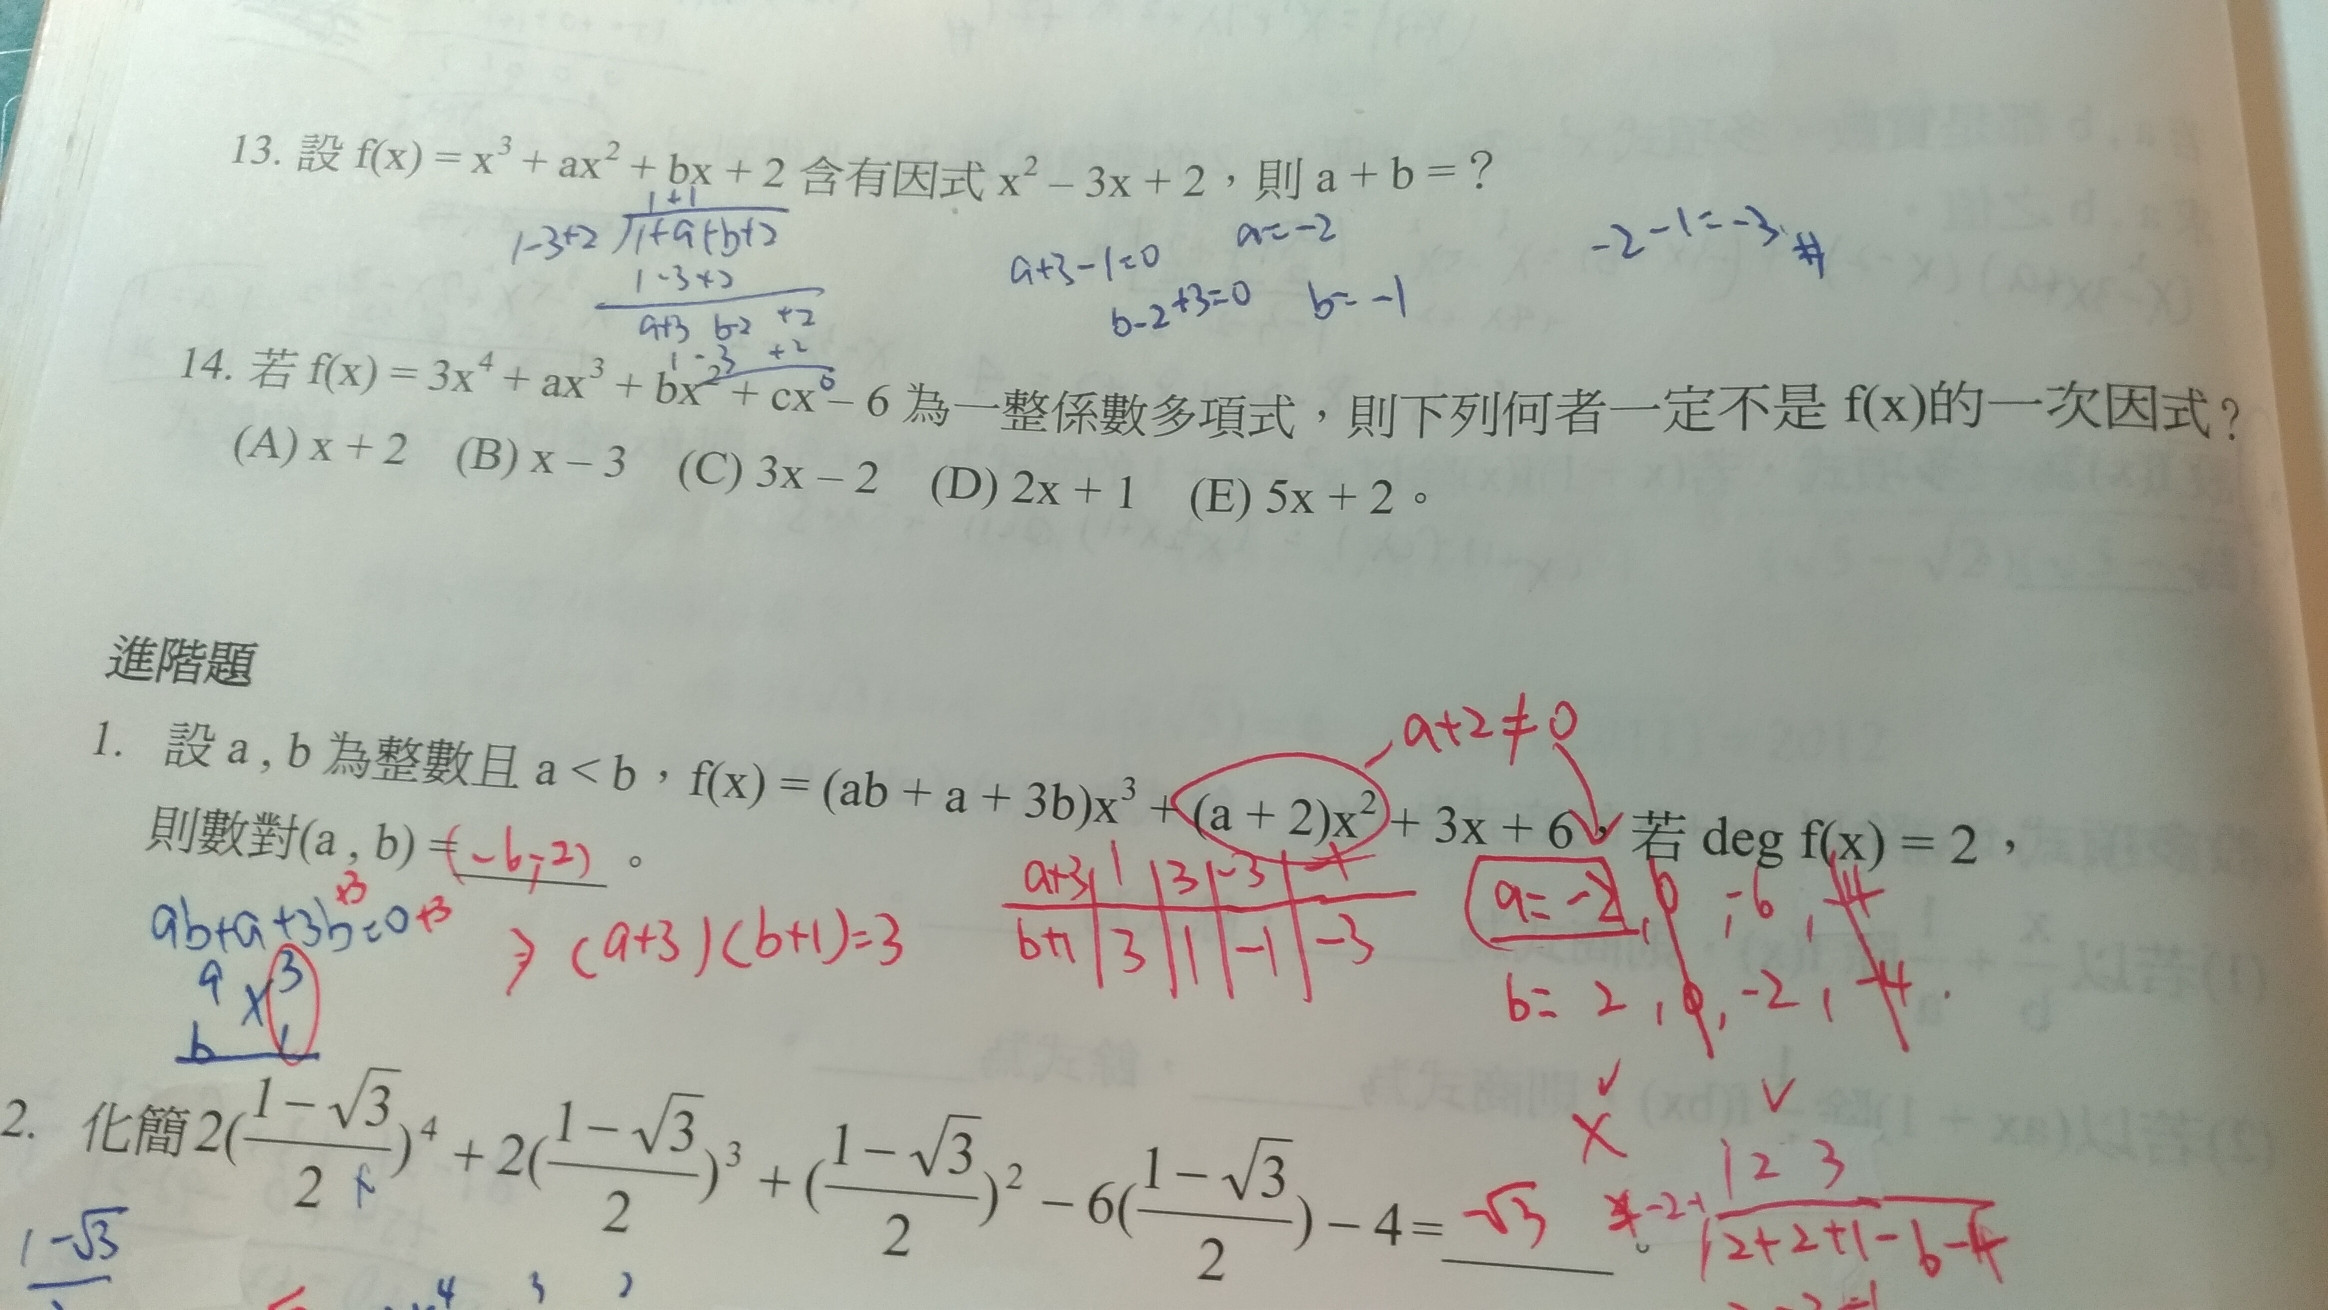 13. 設 f(x) = x³ + ax² + bx + 2 含有因式 x² – 3x + 2，則 a + b = ?
1+1
1-3+2 1+a+b+2
1-3+2
a+3 b-2 +2
1 -3 +2
a+3-1=0 a=-2
b-2+3=0 b=-1
-2-1=-3 #
14. 若 f(x) = 3x⁴ + ax³ + bx² + cx – 6 為一整係數多項式，則下列何者一定不是 f(x)的一次因式?
(A) x + 2 (B) x – 3 (C) 3x – 2 (D) 2x + 1 (E) 5x + 2。
進階題
a+2≠0
1. 設 a , b 為整數且 a < b，f(x) = (ab + a + 3b)x³ + (a + 2)x² + 3x + 6，若 deg f(x) = 2，
則數對(a , b) = (-6,-2) 。
ab+a+3b+3=0+3
a 3
b 1
⇒ (a+3)(b+1)=3
a+3 1 3 -3 -1
b+1 3 1 -1 -3
a=-2, 0, -6, -4
b= 2, 0, -2, -4.
2. 化簡2(\frac{1-√3}{2})⁴ + 2(\frac{1-√3}{2})³ + (\frac{1-√3}{2})² – 6(\frac{1-√3}{2}) – 4 = -√3 。
1 2 3
2+2+1-6-4
1-√3